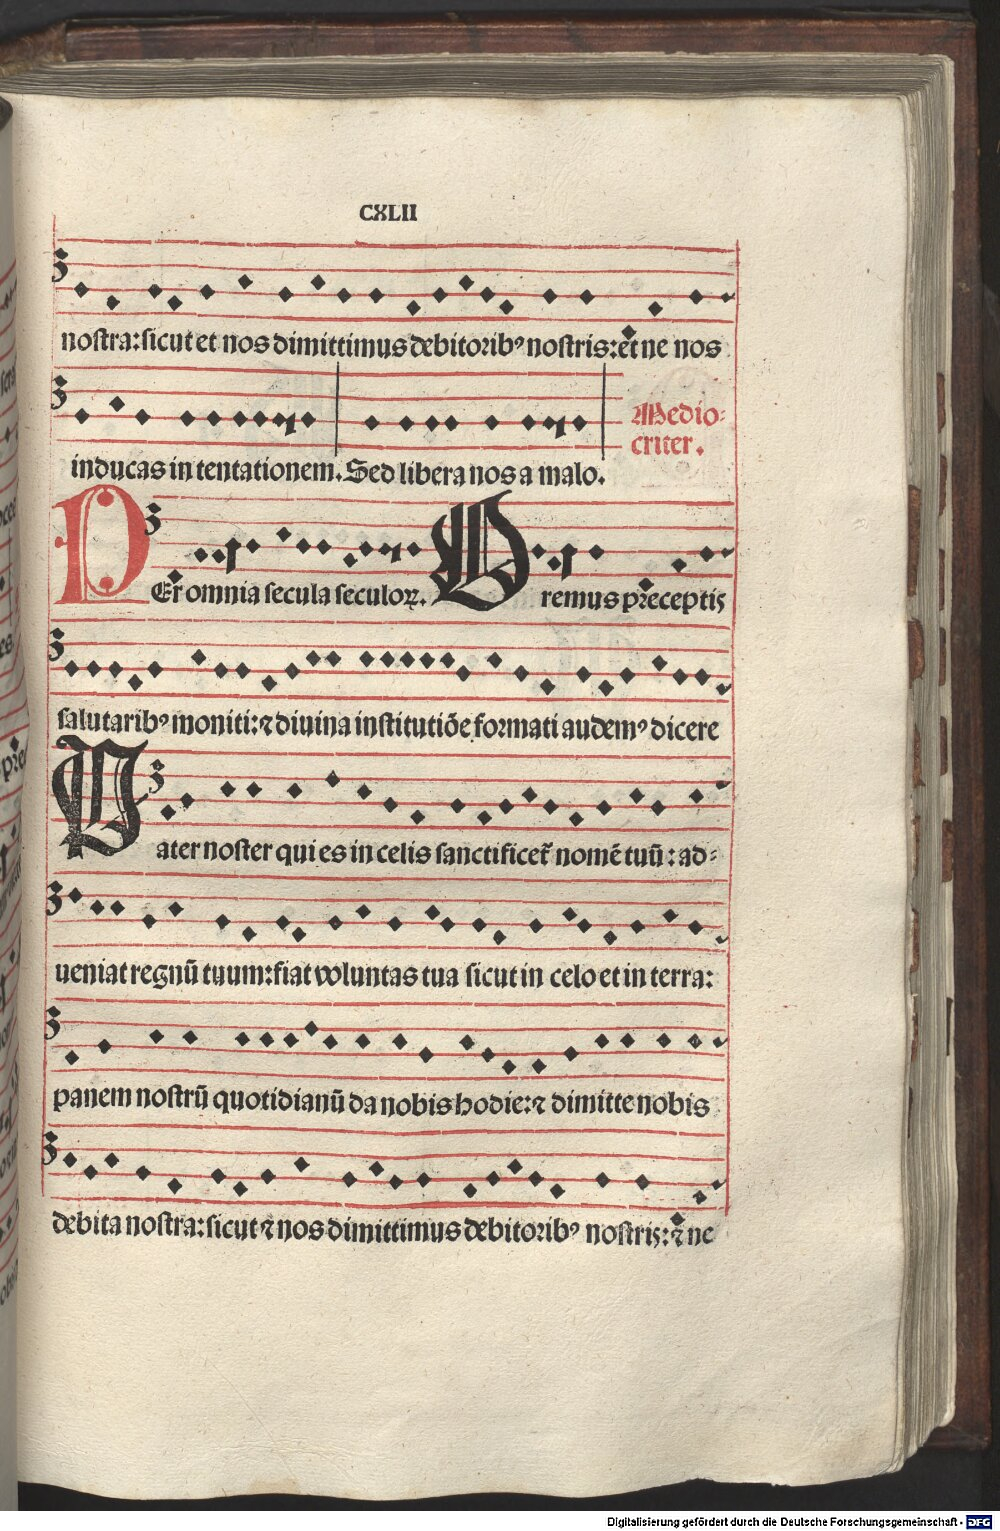 CXLII
nostra: sicut et nos dimittimus debitoribꝰ nostris: et ne nos
inducas in tentationem. Sed libera nos a malo.
Medio-
criter.
PEr omnia secula seculoꝝ. Oremus p̄ceptis
salutaribꝰ moniti: ⁊ diuina institutiōe formati audemꝰ dicere
Pater noster qui es in celis sanctificet̄ nomē tuū: ad-
ueniat regnū tuum: fiat voluntas tua sicut in celo et in terra:
panem nostrū quotidianū da nobis hodie: ⁊ dimitte nobis
debita nostra: sicut ⁊ nos dimittimus debitoribꝰ nostris: ⁊ ne
Digitalisierung gefördert durch die Deutsche Forschungsgemeinschaft - DFG